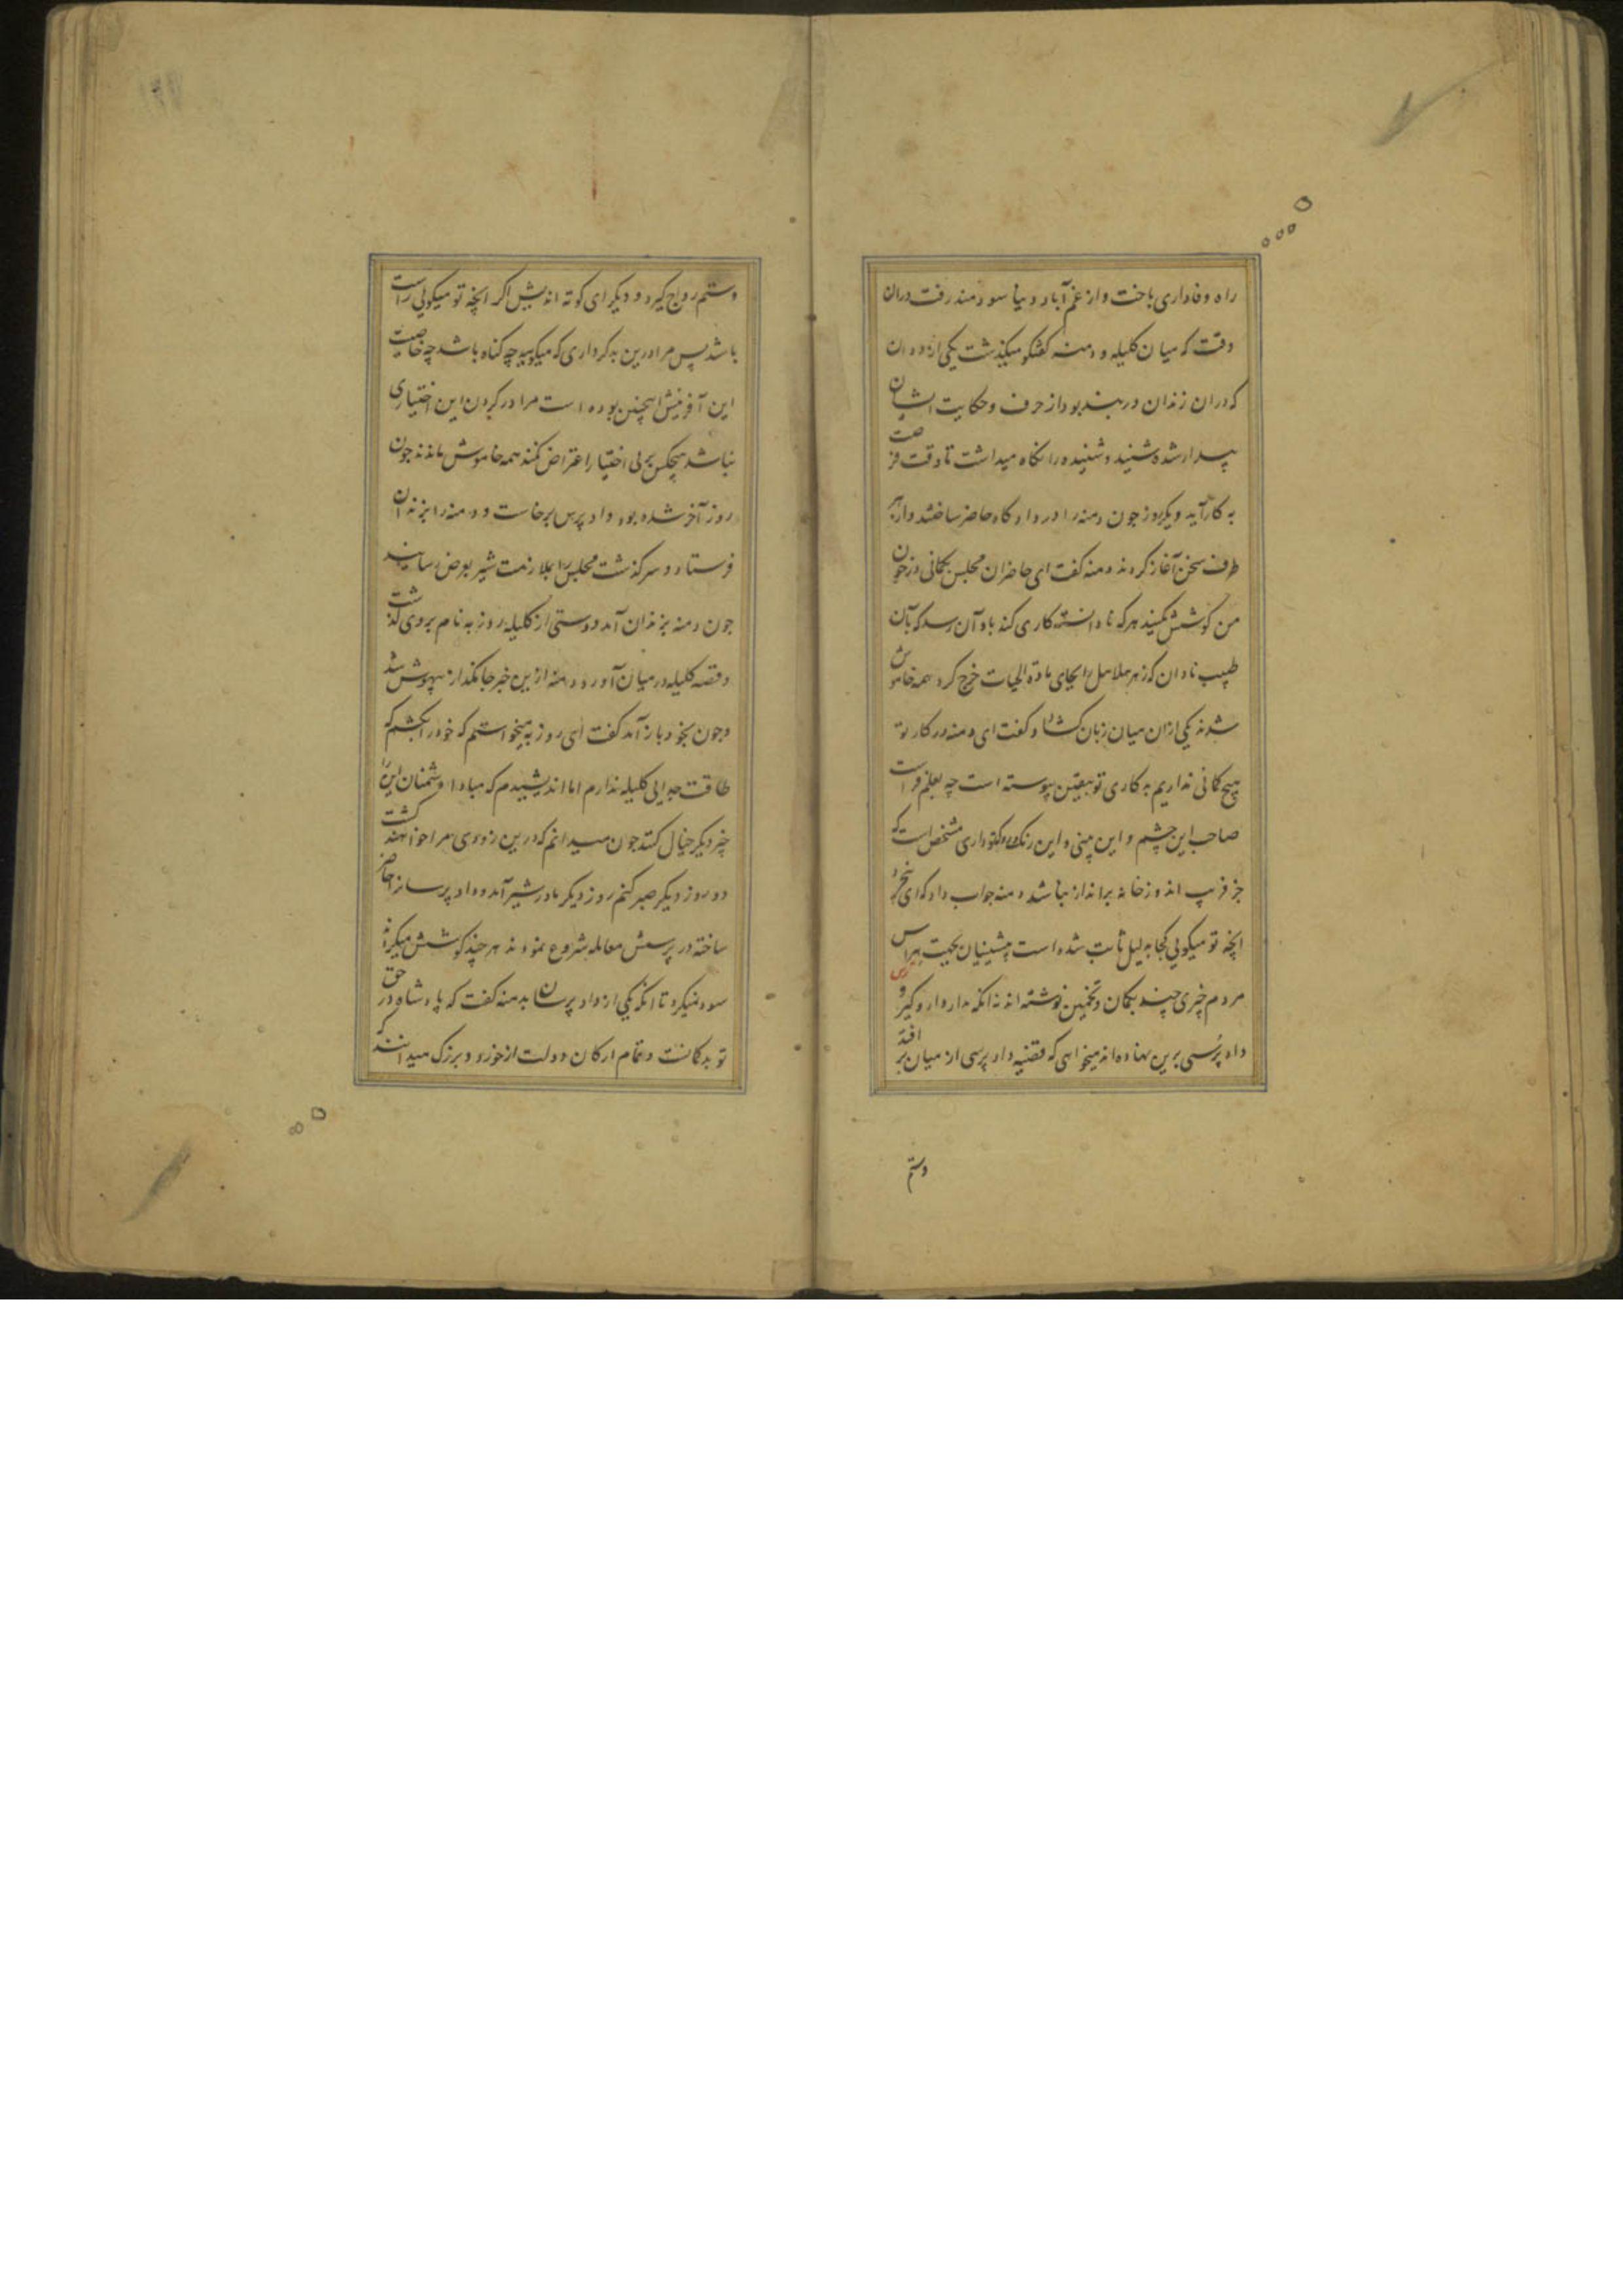 راه وفاداری باخت و از غم آباد دنیا سودمند رفت دران
وقت که میان کلیله و دمنه گفتگو میگذشت یکی از ددان
که دران زندان دربند بود از حرف و حکایت ایشان
بیدار شده شنید و شنیده را نگاه میداشت تا وقت فرصت
به کار آید دیگر روز چون دمنه را در دادگاه حاضر ساختند و از هر
طرف سخن آغاز کردند دمنه گفت ای حاضران مجلس بگمانی در خون
من کوشش مکنید هر که نادانسته کاری کند باو آن رسد که بآن
طبیب نادان که زهر هلاهل را بجای مادة الحیات خرج کرد همه خاموش
شدند یکی ازان میان زبان گشاد و گفت ای دمنه در کار تو
هیچ گمانی نداریم بدکاری تو بیقین پیوسته است چه بعلم فراست
صاحب این چشم و این بینی و این رنگ و که تو داری مشخص است که
جز فریب اندوز خانه برانداز نباشد دمنه جواب داد که ای بیخرد
آنچه تو میگویی کجا بدلیل ثابت شده است پیشینیان بجهت هراس
مردم چیزی چند بگمان و تخمین نوشته اند نه آنکه مدار دار و گیر و
داد پرسی برین نهاده اند میخواهی که قضیه داد پرسی از میان بر افتد
وستم
وستم رواج گیرد و دیگر ای کوته اندیش اگر آنچه تو میگویی راست
باشد پس مرا درین بدکرداری که میگویید چه گناه باشد چه خاصیت
این آفرینش اینچنین بوده است مرا در کردن این اختیاری
نباشد هیچکس بر بی اختیار اعتراض نکند همه خاموش ماندند چون
روز آخر شده بود داد پرس برخاست و دمنه را بزندان
فرستاد و سرگذشت مجلس را بملازمت شیر بعرض رسانید
چون دمنه بزندان آمد دوستی از کلیله روزبه نام بروی گذشت
و قصه کلیله در میان آورد دمنه ازین خبر جانگداز بیهوش شد
و چون بخود باز آمد گفت ای روزبه میخواستم که خود را بکشم که
طاقت جدایی کلیله ندارم اما اندیشیدم که مبادا دشمنان این را
چیز دیگر خیال کنند چون میدانم که درین زودی مرا خواهند کشت
دو روز دیگر صبر کنم روز دیگر مادر شیر آمد و داد پرسانرا حاضر
ساخته در پرسش معامله شروع نمودند هر چند کوشش میکردند
سود نمیکرد تا آنکه یکی از داد پرسان بدمنه گفت که پادشاه در حق
تو بدگمانست و تمام ارکان دولت از خورد و بزرگ میدانند که